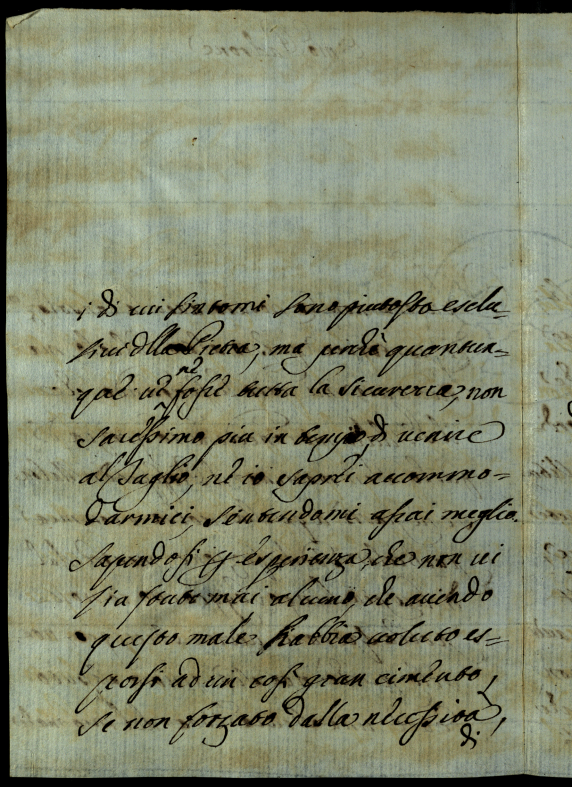 i di cui sintomi sono piutosto esclu-
sivi della Pietra, ma perchè quantun-
que ve ne fosse tutta la sicurezza, non
saressimo piu in tempo di venire
al Taglio, nè io saprei accommo-
darmici, sentendomi assai meglio.
sapendosi per esperienza, che non vi
sia stato mai alcuno, che avendo
questo male habbia voluto es-
porsi ad un cosi gran cimento,
se non forzato dalla necessità,
di